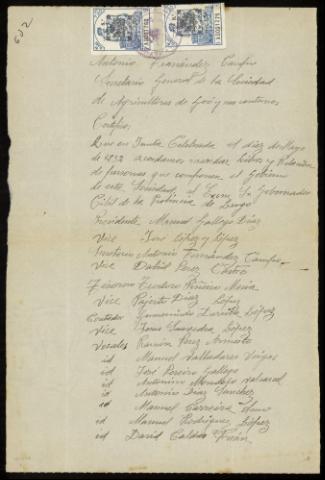 Antonio Fernández Campo
Secretario General de la Sociedad
de Agricultores de Goó y sus contornos
Certifico:
Que en Junta Celebrada el diez de Mayo
de 1932 acordamos mandar Listas y Relación
de personas que componen el Gobierno
de esta Sociedad, al Excm. Sr. Gobernador
Civil de la Provincia de Lugo
Presidente Manuel Gallego Díaz
Vice José López y López
Secretario Antonio Fernández Campo
Vice David Pérez Castro
Tesorero Teodoro Piñeiro
Vice Díaz López
Contador Gumersindo López
Vice Jesús Saavedra López
Vocales Ramón Pérez Armesto
id Manuel Valladares Vargas
id José Pereiro Gallego
id Antonino Mondelo Valcarcel
id Antonio Díaz Sánchez
id Manuel Parreira
id Manuel Rodríguez López
id David Caldas